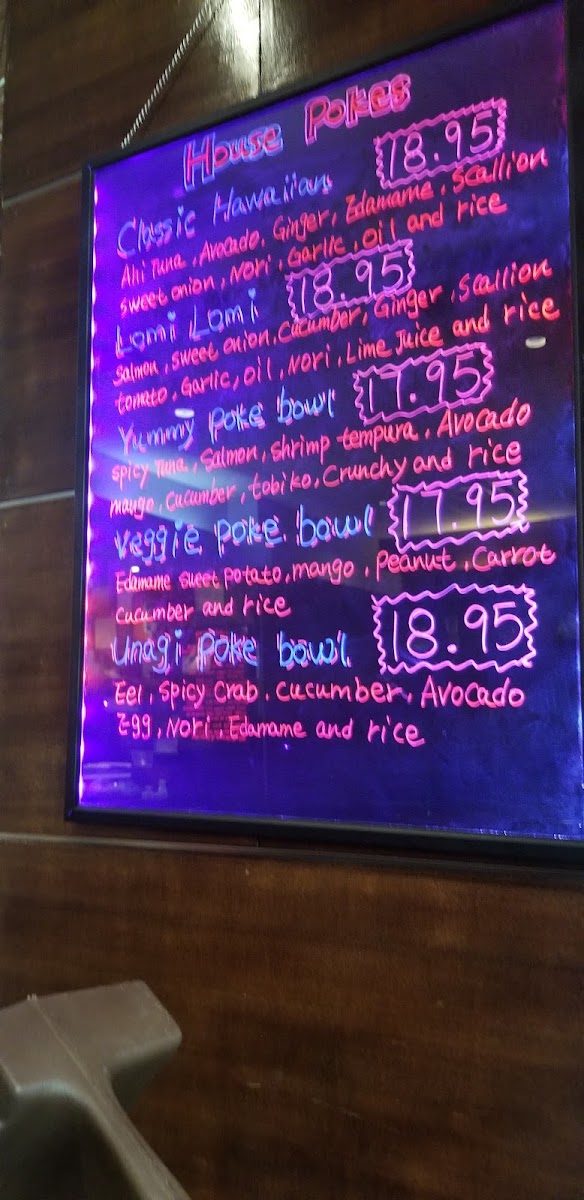 House Pokes
Classic Hawaiian 18.95
Ahi Tuna, Avocado, Ginger, Edamame, Scallion
sweet onion, Nori, Garlic, oil and rice
Lomi Lomi 18.95
Salmon, sweet onion, Cucumber, Ginger, Scallion
tomato, Garlic, oil, Nori, Lime Juice and rice
Yummy poke bowl 17.95
spicy Tuna, Salmon, shrimp tempura, Avocado
mango, Cucumber, tobiko, Crunchy and rice
Veggie poke bowl 17.95
Edamame sweet potato, mango, peanut, Carrot
Cucumber and rice
Unagi poke bowl 18.95
Eel, spicy Crab, cucumber, Avocado
Egg, Nori, Edamame and rice